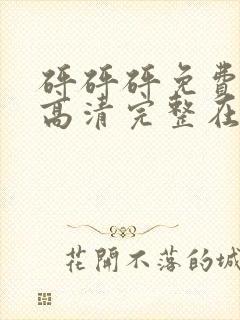 砰砰砰免费
高清完整在
花開不落的城